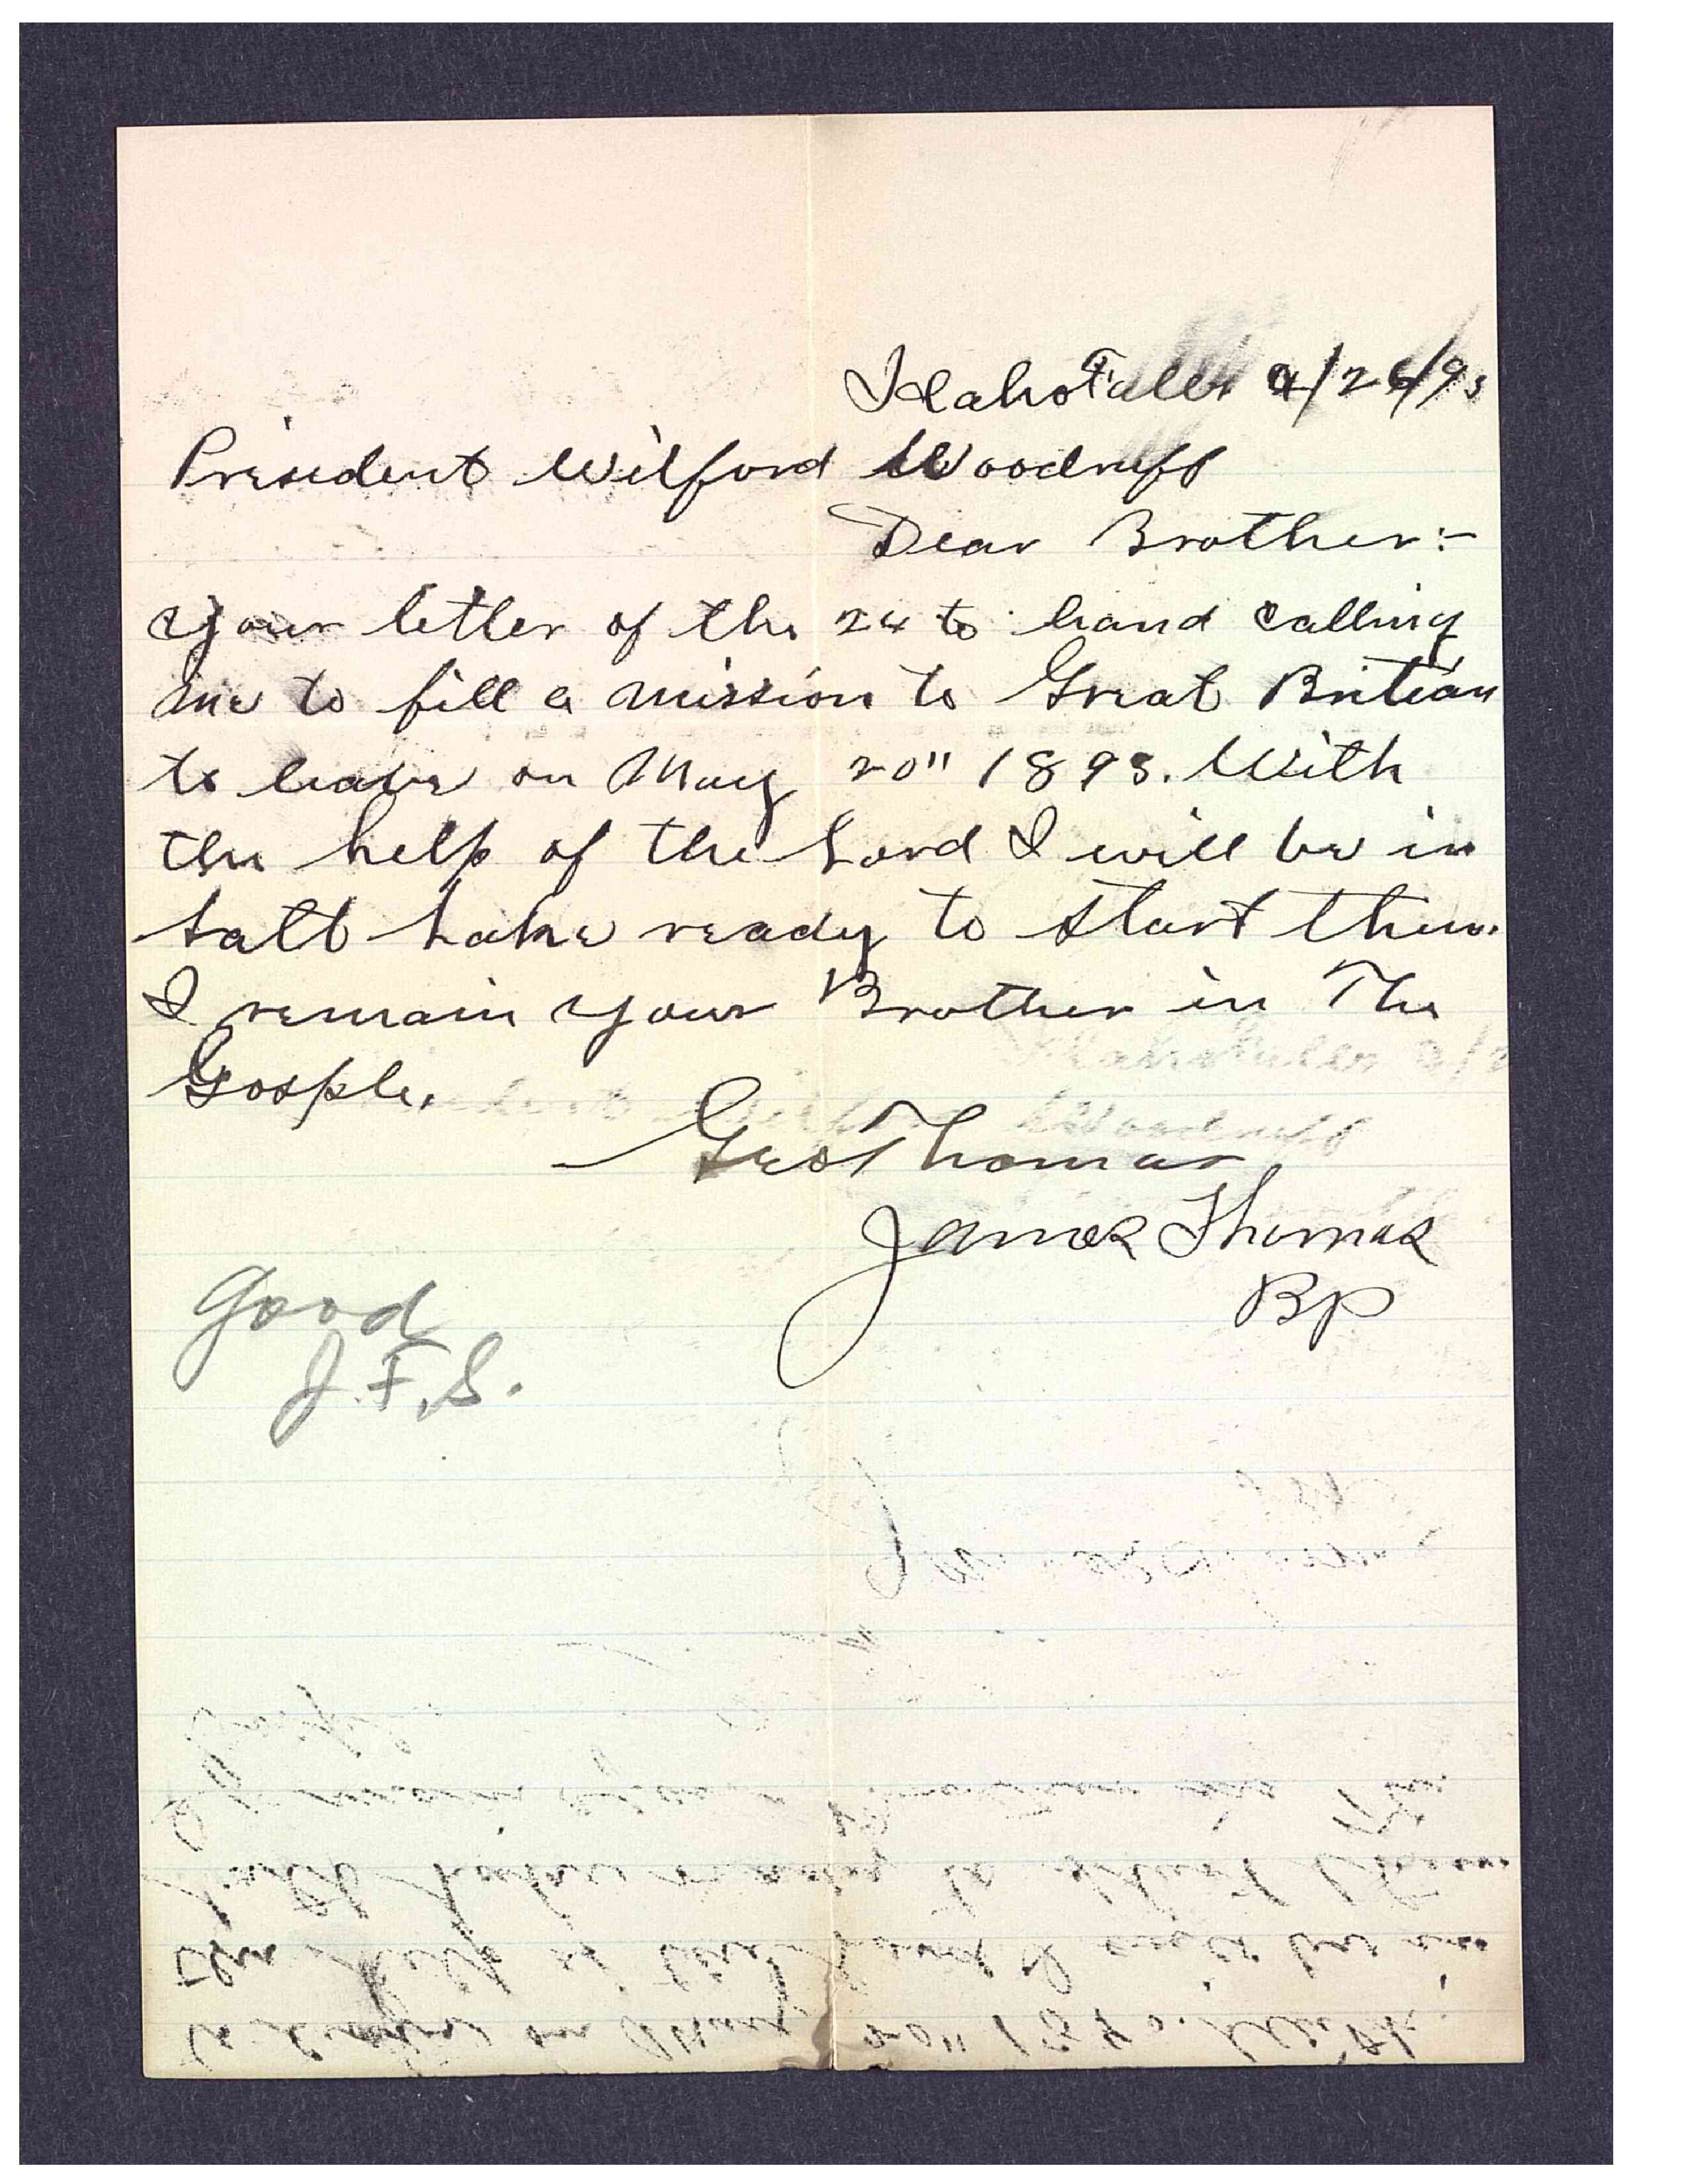 Idaho Falls 4/26/93
President Wilford Woodruff
Dear Brother:-
Your letter of the 24 to hand calling
me to fill a mission to Great Britian
to leave on May 20" 1893. With
the help of the Lord I will be in
Salt Lake ready to start then.
I remain your Brother in The
Gosple.
Geo Thomas
James Thomas
BP
Good
J.F.S.